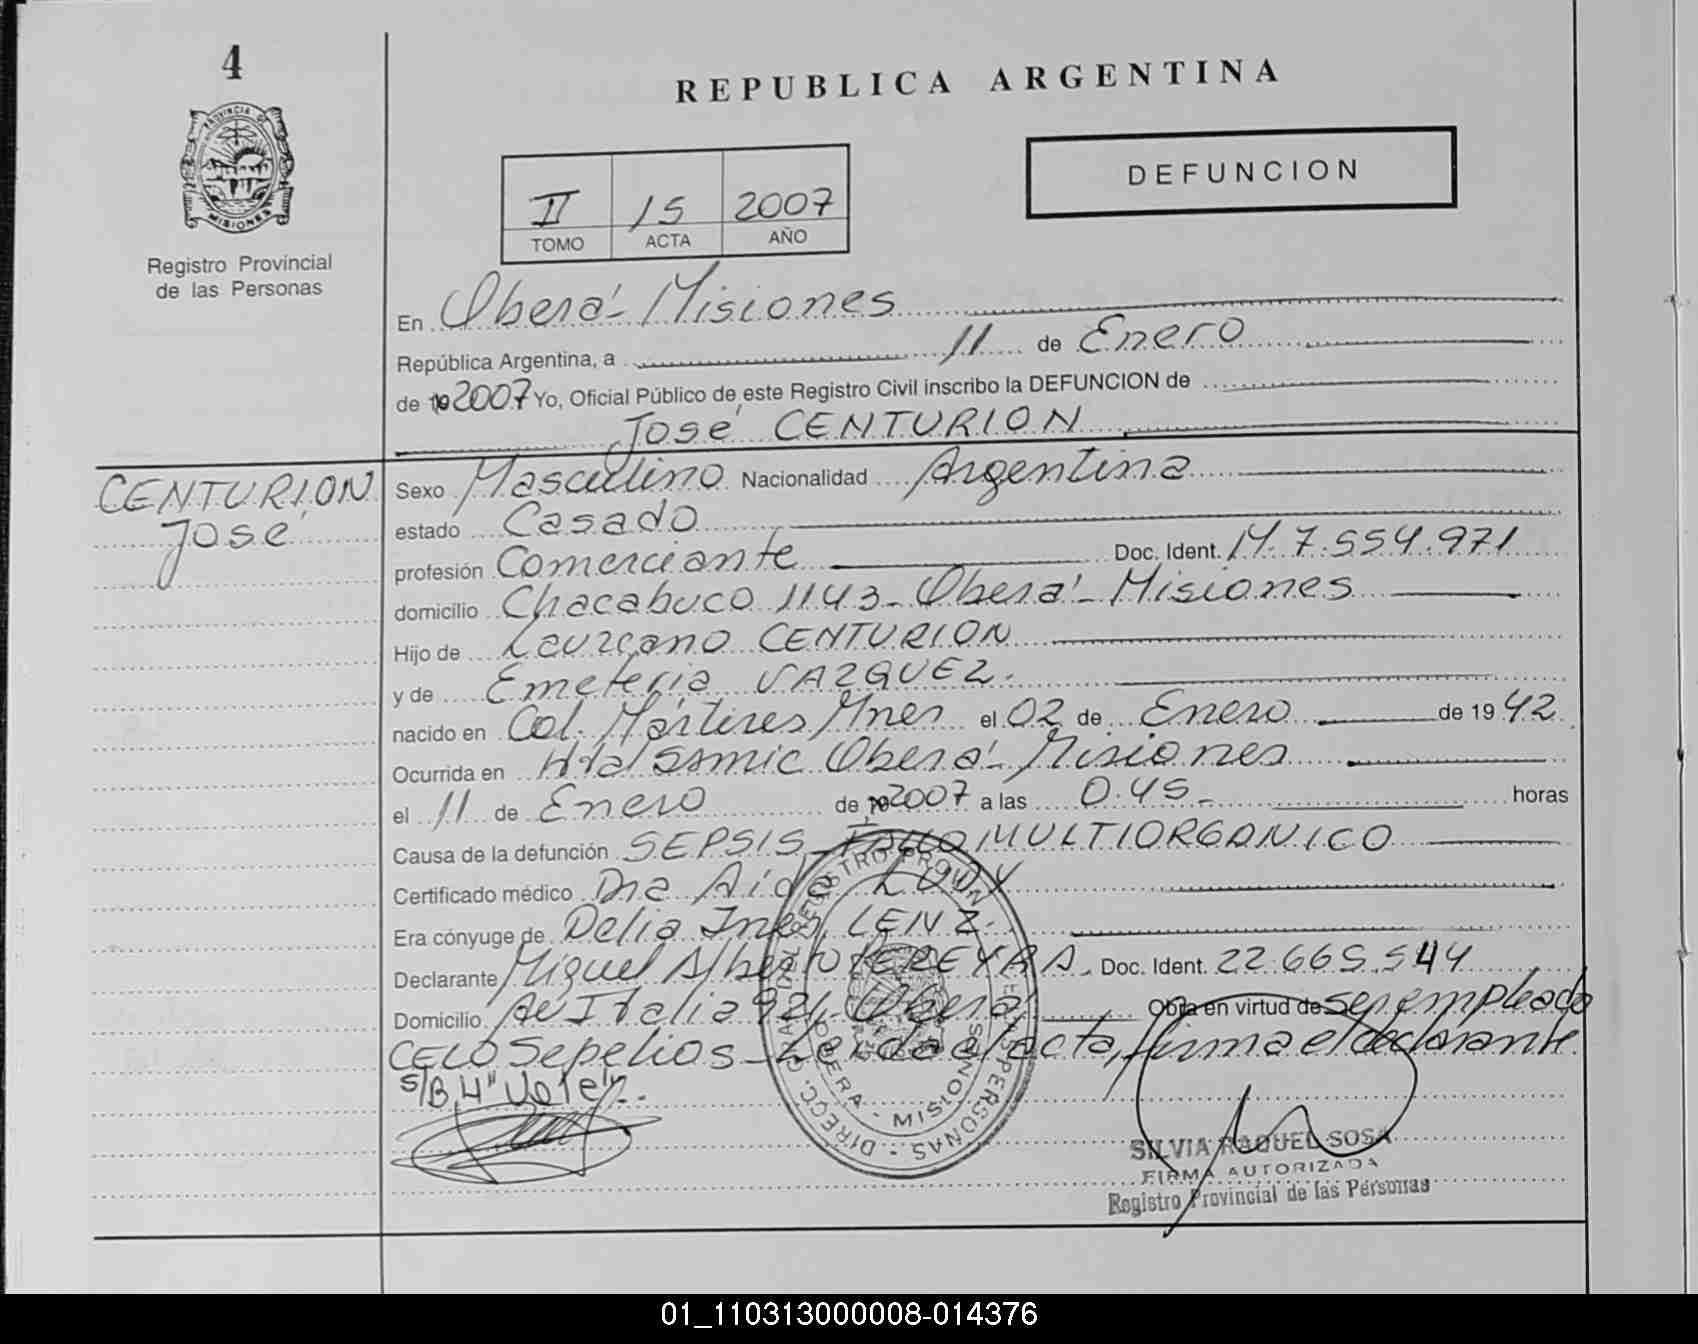 4
REPUBLICA ARGENTINA
DEFUNCION
PROVINCIA DE
MISIONES
II 15 2007
TOMO ACTA AÑO
Registro Provincial
de las Personas
En Oberá - Misiones
República Argentina, a 11 de Enero
de 2007 Yo, Oficial Público de este Registro Civil inscribo la DEFUNCION de
José CENTURION
CENTURION
José
Sexo Masculino Nacionalidad Argentina
estado Casado
profesión Comerciante Doc. Ident. M. 7.554.971
domicilio Chacabuco 1143 - Oberá - Misiones
Hijo de Laureano CENTURION
y de Emeteria VAZQUEZ.
nacido en Col. Mártires Mnes el 02 de Enero de 1942
Ocurrida en Htal SAMIC Oberá - Misiones
el 11 de Enero de 2007 a las 0.45 - horas
Causa de la defunción SEPSIS - FALLO MULTIORGANICO
Certificado médico Dra Aida
Era cónyuge de Delia Inés LENZ.
Declarante Miguel Alberto PEREYRA. Doc. Ident. 22.665.544
Domicilio Av Italia 921, Oberá Obra en virtud de ser empleado
CELO Sepelios - Leída el acta, firma el declarante.
S/B 4" Vale
SILVIA RAQUEL SOSA
FIRMA AUTORIZADA
Registro Provincial de las Personas
OBERA - MISIONES
01_110313000008-014376